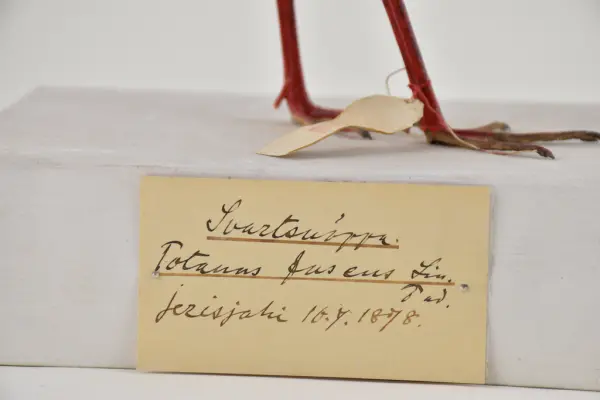 Svartsnäppa.
Totanus fuscus Lin.
Pad.
jerisjahi 16.7.1878.